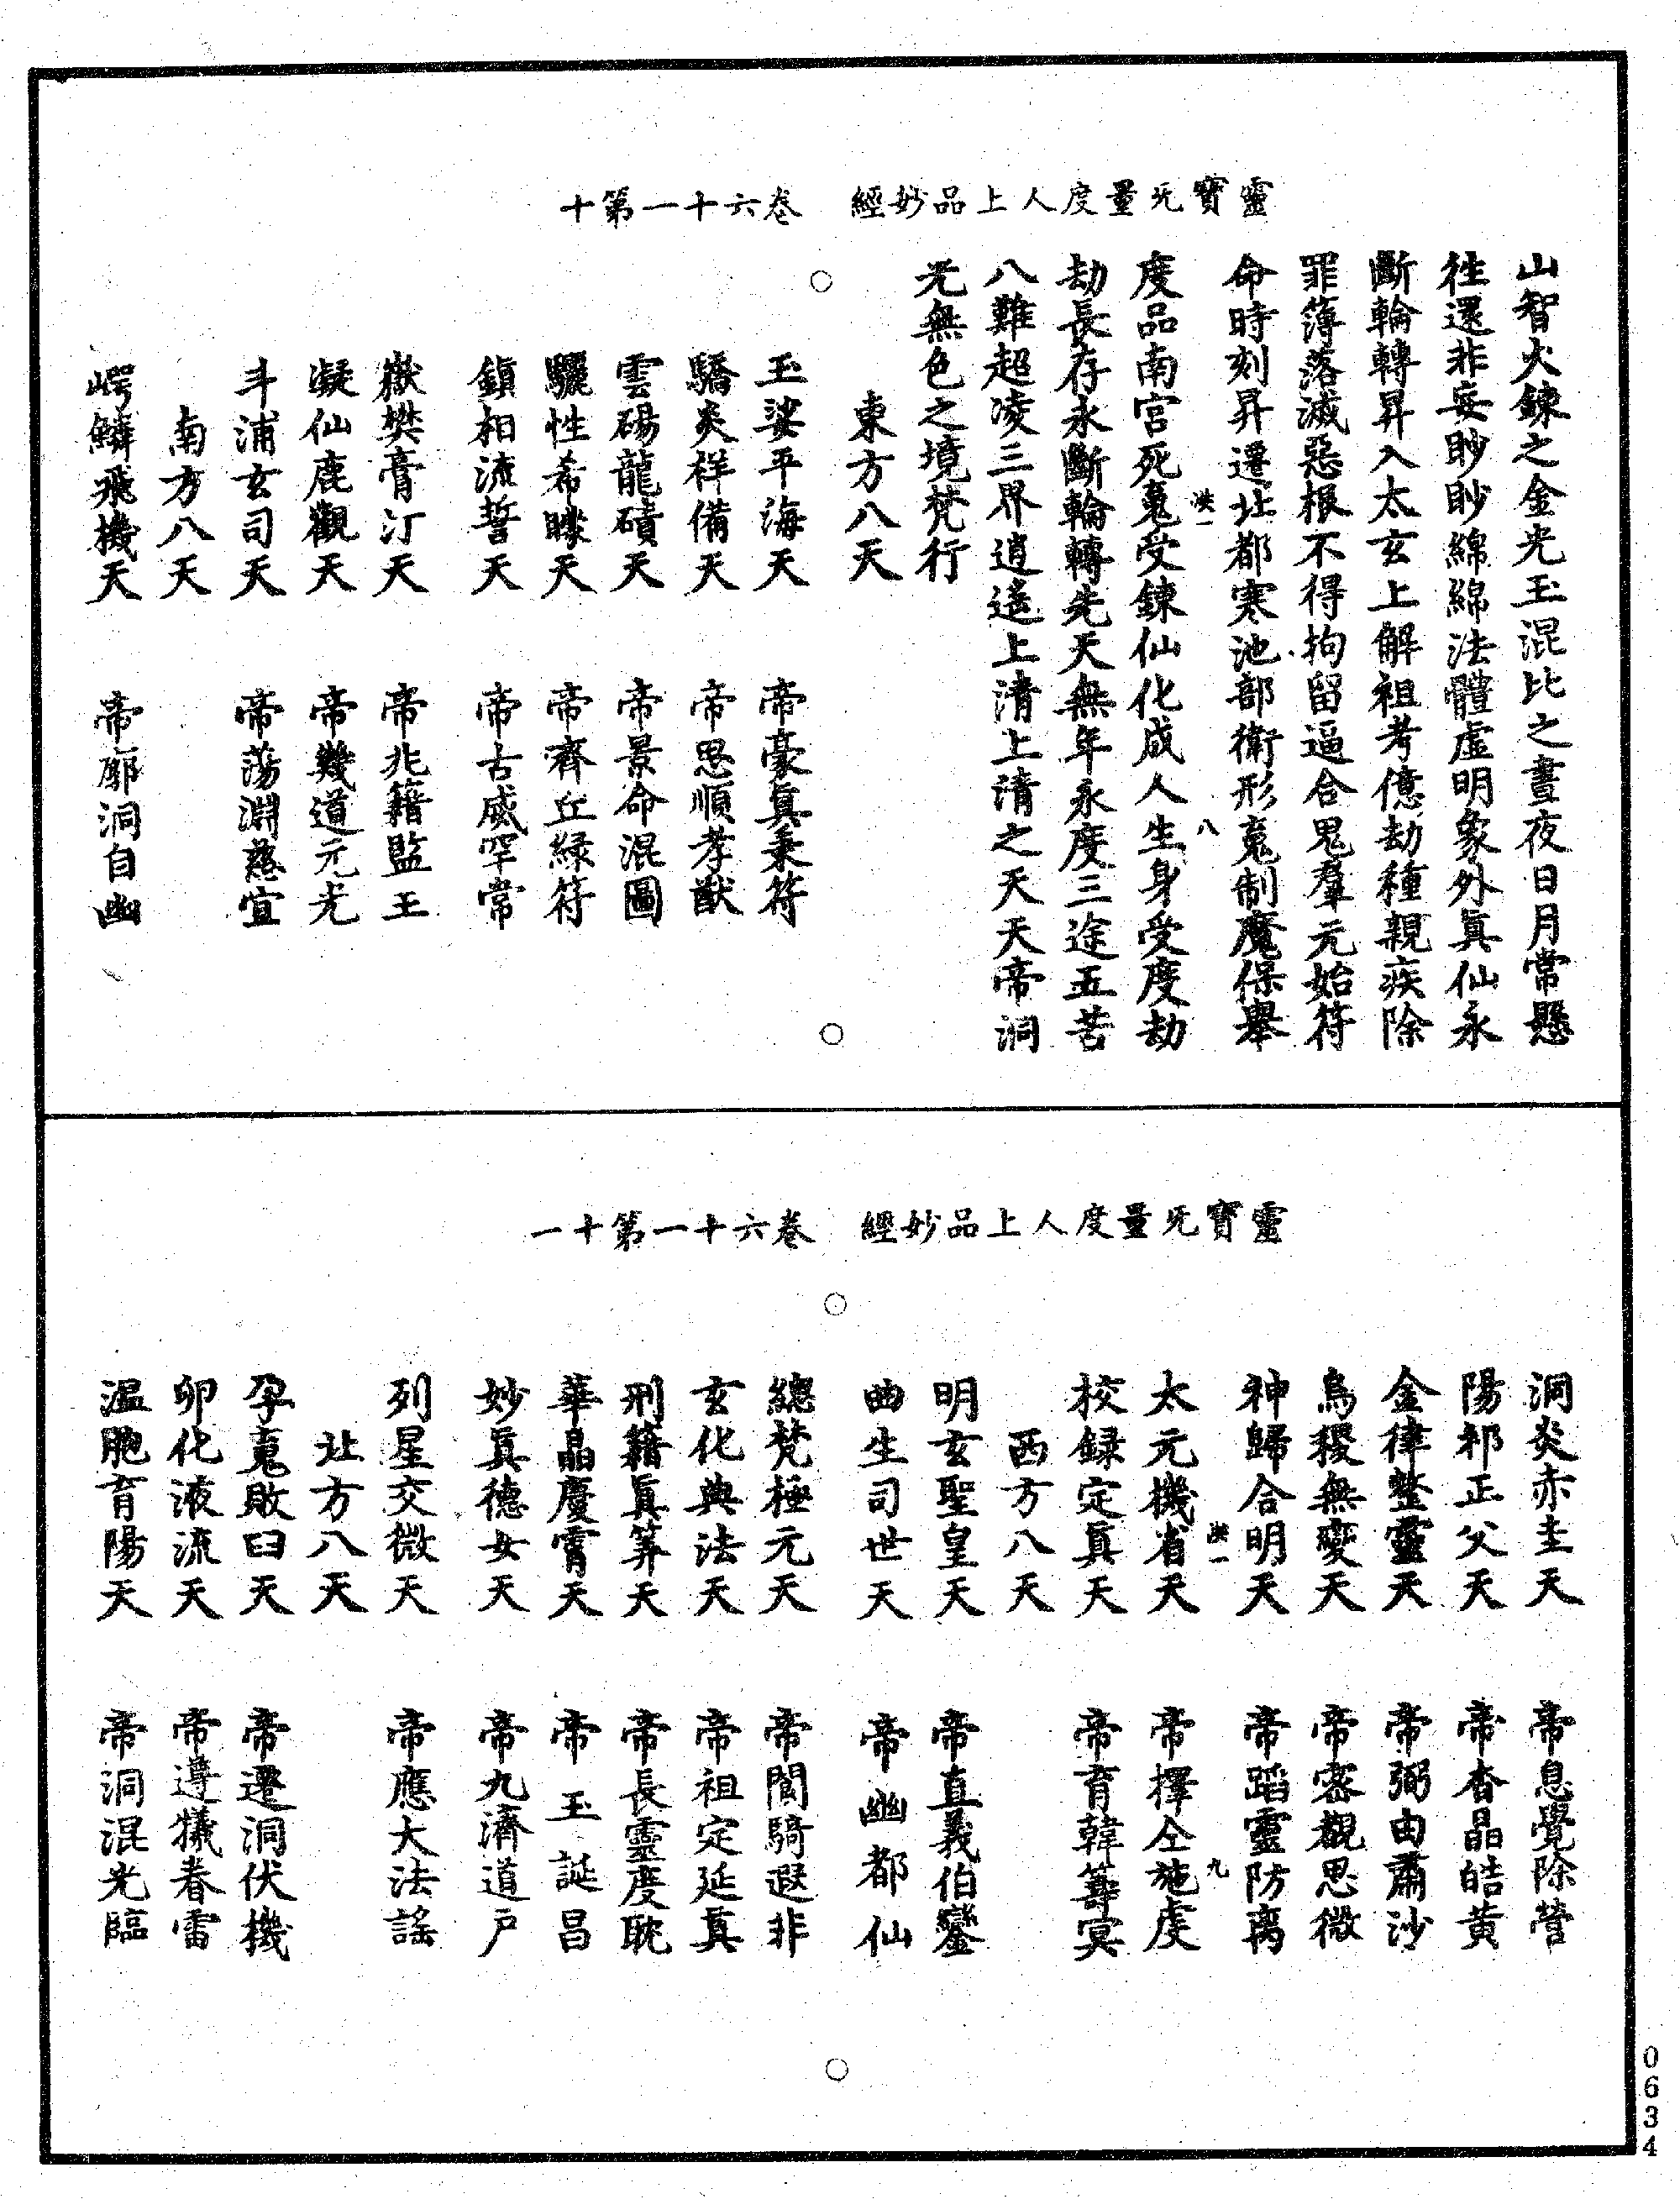 靈寶无量度人上品妙經　卷六十一第十
山智火鍊之金光玉混比之晝夜日月常懸
往還非妄眇眇綿綿法體虛明象外真仙永
斷輪轉昇入太玄上解祖考億劫種親疾除
罪簿落滅惡根不得拘留逼合鬼羣元始符
命時刻昇遷北都寒池部衛形䰟制魔保舉
洪一　八
度品南宮死䰟受鍊仙化成人生身受度劫
劫長存永斷輪轉先天無年永度三途五苦
八難超凌三界逍遙上清上清之天天帝洞
光無色之境梵行
東方八天
玉娑平海天　帝豪真秉符
驕炎祥備天　帝思順孝猷
雲碭龍磧天　帝景命混圖
驪性希矇天　帝齊丘綠符
鎮相流誓天　帝古威罕常
嶽樊膏汀天　帝兆籍監王
凝仙鹿觀天　帝幾道元光
斗浦玄司天　帝蕩淵慈宣
南方八天
崿鱗飛機天　帝廓洞自幽
靈寶无量度人上品妙經　卷六十一第十一
洞炎赤圭天　帝息覺除營
陽祁正父天　帝杳晶皓黃
金律整靈天　帝弼由肅沙
烏稷無變天　帝密覯思微
神歸合明天　帝蹈靈防离
洪一　九
太元機省天　帝擇仝施虔
校録定真天　帝育韓籌寞
西方八天
明玄聖皇天　帝直義伯鑾
曲生司世天　帝幽都仙
總梵極元天　帝閬騎遐非
玄化典法天　帝祖定延真
刑籍真筭天　帝長靈度耽
華晶慶霄天　帝玉誕昌
妙真德女天　帝九濟道戶
列星交微天　帝應大法謠
北方八天
孕䰟敗曰天　帝遷洞伏機
卯化液流天　帝遵犧春雷
温胞育陽天　帝洞混光臨
0634